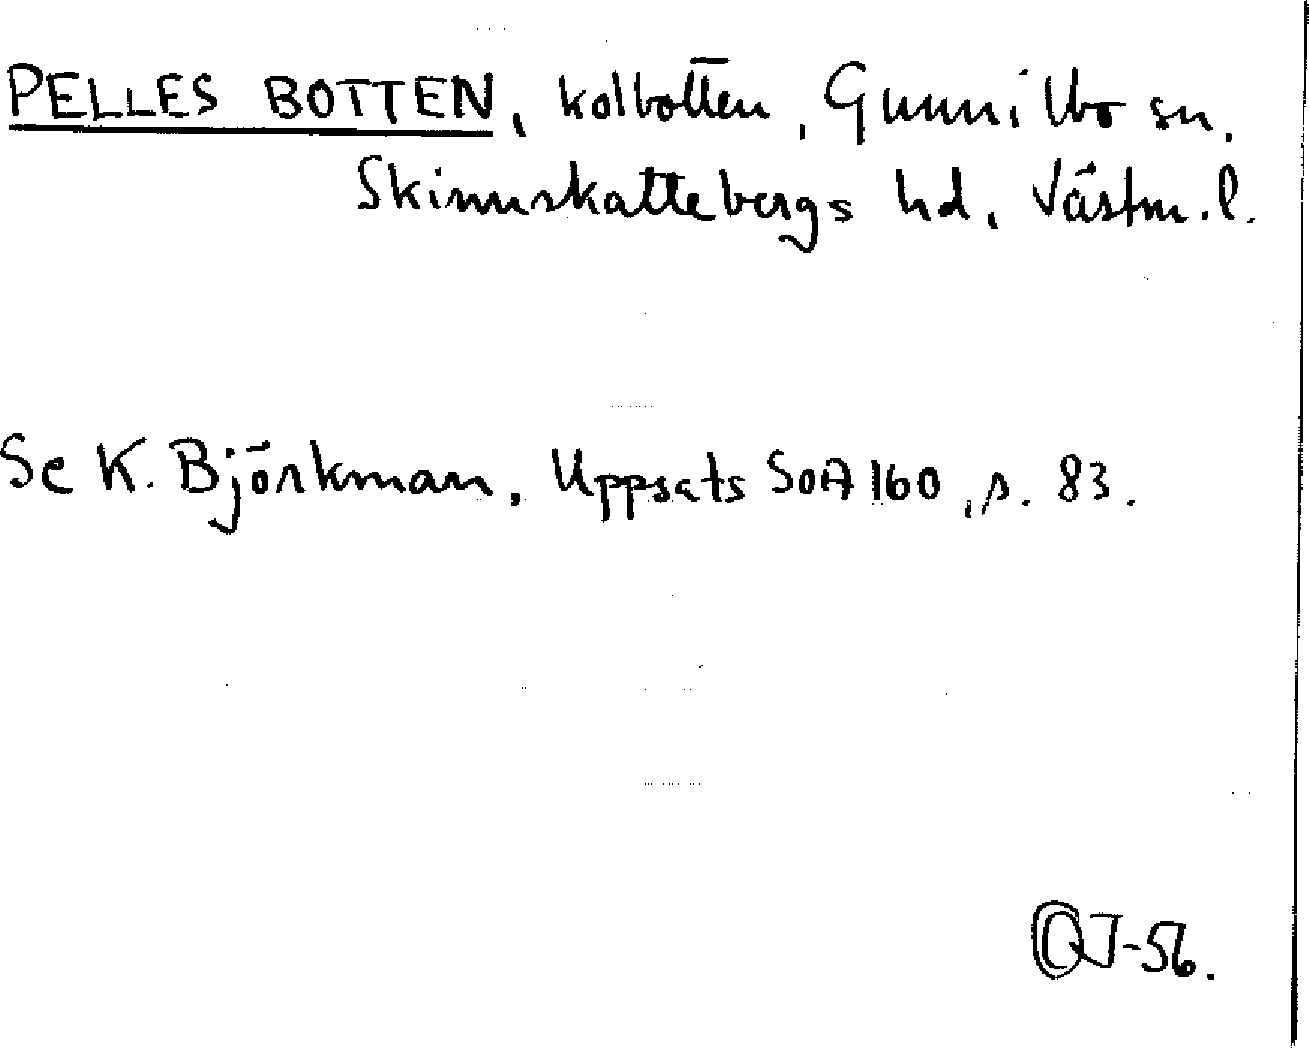 PELLES BOTTEN, kolbotten, Gunnilbo sn.
Skinnskattebergs hd, Västm. l.
Se K. Björkman, Uppsats SOA 160, s. 83.
OJ-56.